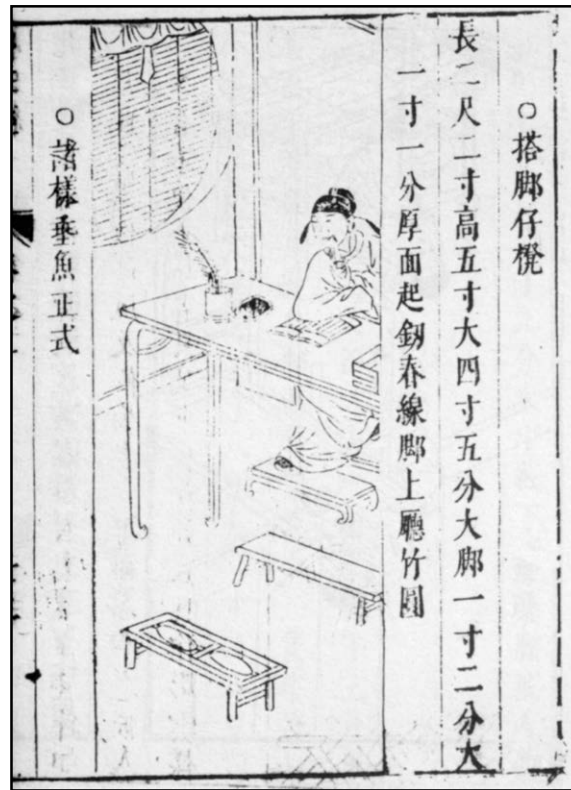 ○搭脚仔櫈
長二尺二寸高五寸大四寸五分大脚一寸二分大
一寸一分厚面起釰春線脚上廳竹圓
○諸樣垂魚正式